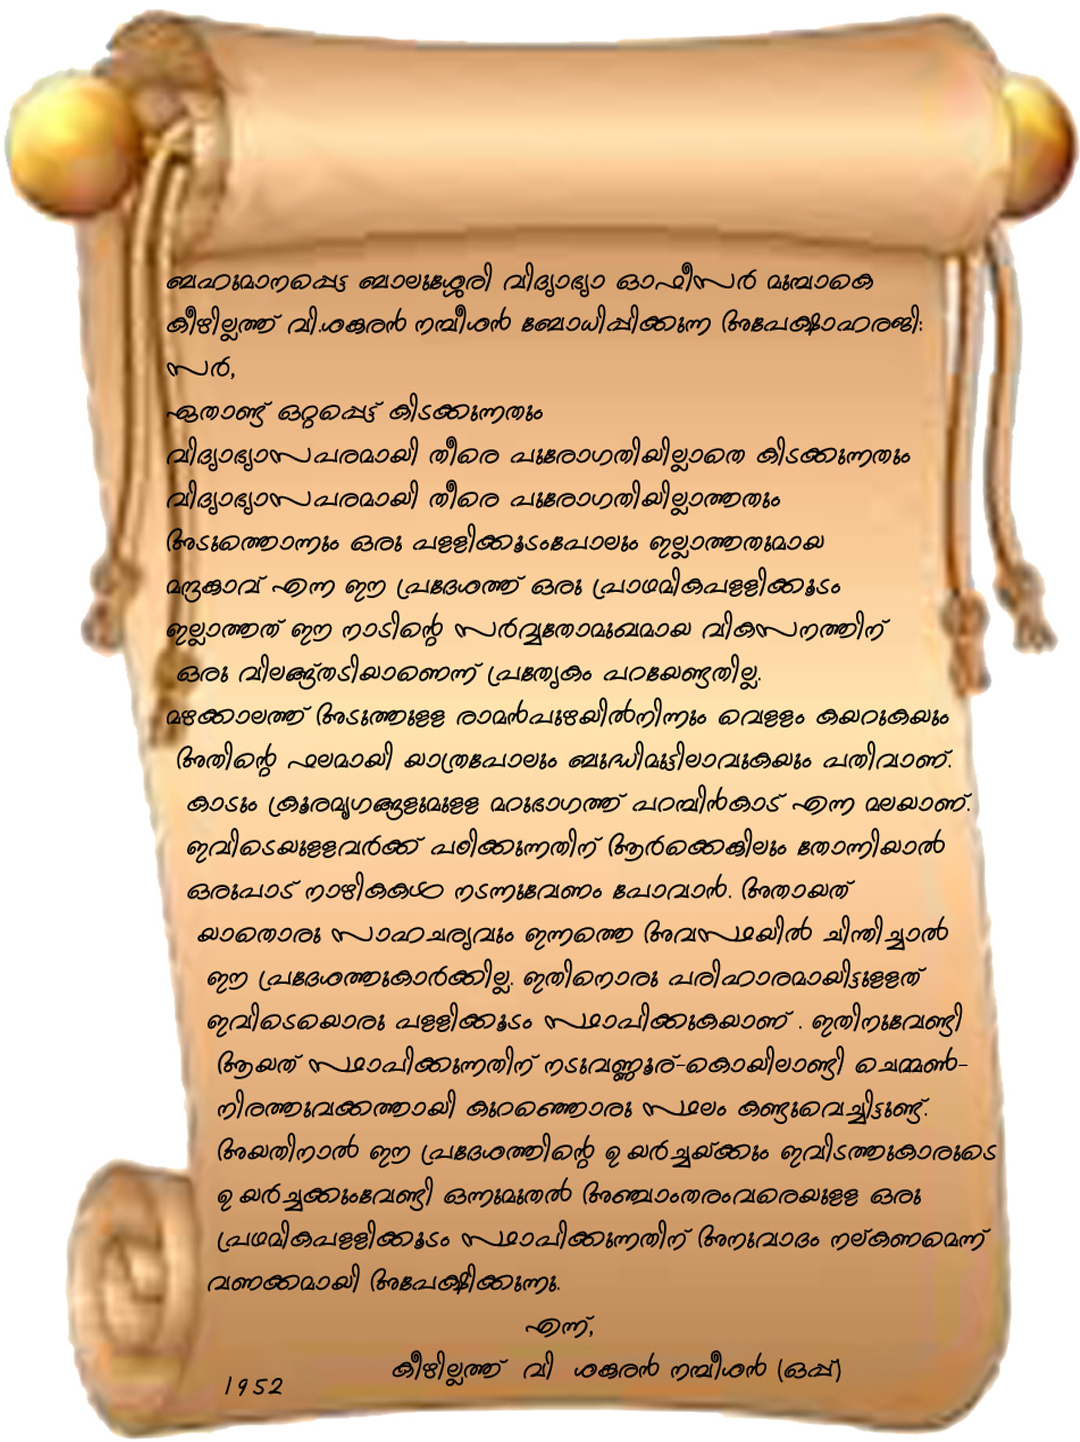 ബഹുമാനപ്പെട്ട ബാലുശ്ശേരി വിദ്യാഭ്യാ ഓഫീസർ മുമ്പാകെ
കീഴില്ലത്ത് വി.ശങ്കരൻ നമ്പീശൻ ബോധിപ്പിക്കുന്ന അപേക്ഷാഹരജി:
സർ,
ഏതാണ്ട് ഒറ്റപ്പെട്ട് കിടക്കുന്നതും
വിദ്യാഭ്യാസപരമായി തീരെ പുരോഗതിയില്ലാതെ കിടക്കുന്നതും
വിദ്യാഭ്യാസപരമായി തീരെ പുരോഗതിയില്ലാത്തതും
അടുത്തൊന്നും ഒരു പള്ളിക്കൂടംപോലും ഇല്ലാത്തതുമായ
മന്ദങ്കാവ് എന്ന ഈ പ്രദേശത്ത് ഒരു പ്രാഥമികപള്ളിക്കൂടം
ഇല്ലാത്തത് ഈ നാടിന്റെ സർവ്വതോമുഖമായ വികസനത്തിന്
ഒരു വിലങ്ങ്തടിയാണെന്ന് പ്രത്യേകം പറയേണ്ടതില്ല.
മഴക്കാലത്ത് അടുത്തുള്ള രാമൻപുഴയിൽനിന്നും വെള്ളം കയറുകയും
അതിന്റെ ഫലമായി യാത്രപോലും ബുദ്ധിമുട്ടിലാവുകയും പതിവാണ്.
കാടും ക്രൂരമൃഗങ്ങളുമുള്ള മറുഭാഗത്ത് പറമ്പിൻകാട് എന്ന മലയാണ്.
ഇവിടെയുള്ളവർക്ക് പഠിക്കുന്നതിന് ആർക്കെങ്കിലും തോന്നിയാൽ
ഒരുപാട് നാഴികകൾ നടന്നുവേണം പോവാൻ. അതായത്
യാതൊരു സാഹചര്യവും ഇന്നത്തെ അവസ്ഥയിൽ ചിന്തിച്ചാൽ
ഈ പ്രദേശത്തുകാർക്കില്ല. ഇതിനൊരു പരിഹാരമായിട്ടുള്ളത്
ഇവിടെയൊരു പള്ളിക്കൂടം സ്ഥാപിക്കുകയാണ് . ഇതിനുവേണ്ടി
ആയത് സ്ഥാപിക്കുന്നതിന് നടുവണ്ണൂര്-കൊയിലാണ്ടി ചെമ്മൺ-
നിരത്തുവക്കത്തായി കുറഞ്ഞൊരു സ്ഥലം കണ്ടുവെച്ചിട്ടുണ്ട്.
അയതിനാൽ ഈ പ്രദേശത്തിന്റെ ഉയർച്ചയ്ക്കും ഇവിടത്തുകാരുടെ
ഉയർച്ചക്കുംവേണ്ടി ഒന്നുമുതൽ അഞ്ചാംതരംവരെയുള്ള ഒരു
പ്രഥമികപള്ളിക്കൂടം സ്ഥാപിക്കുന്നതിന് അനുവാദം നല്കണമെന്ന്
വണക്കമായി അപേക്ഷിക്കുന്നു.
എന്ന്,
കീഴില്ലത്ത് വി ശങ്കരൻ നമ്പീശൻ (ഒപ്പ്)
1952